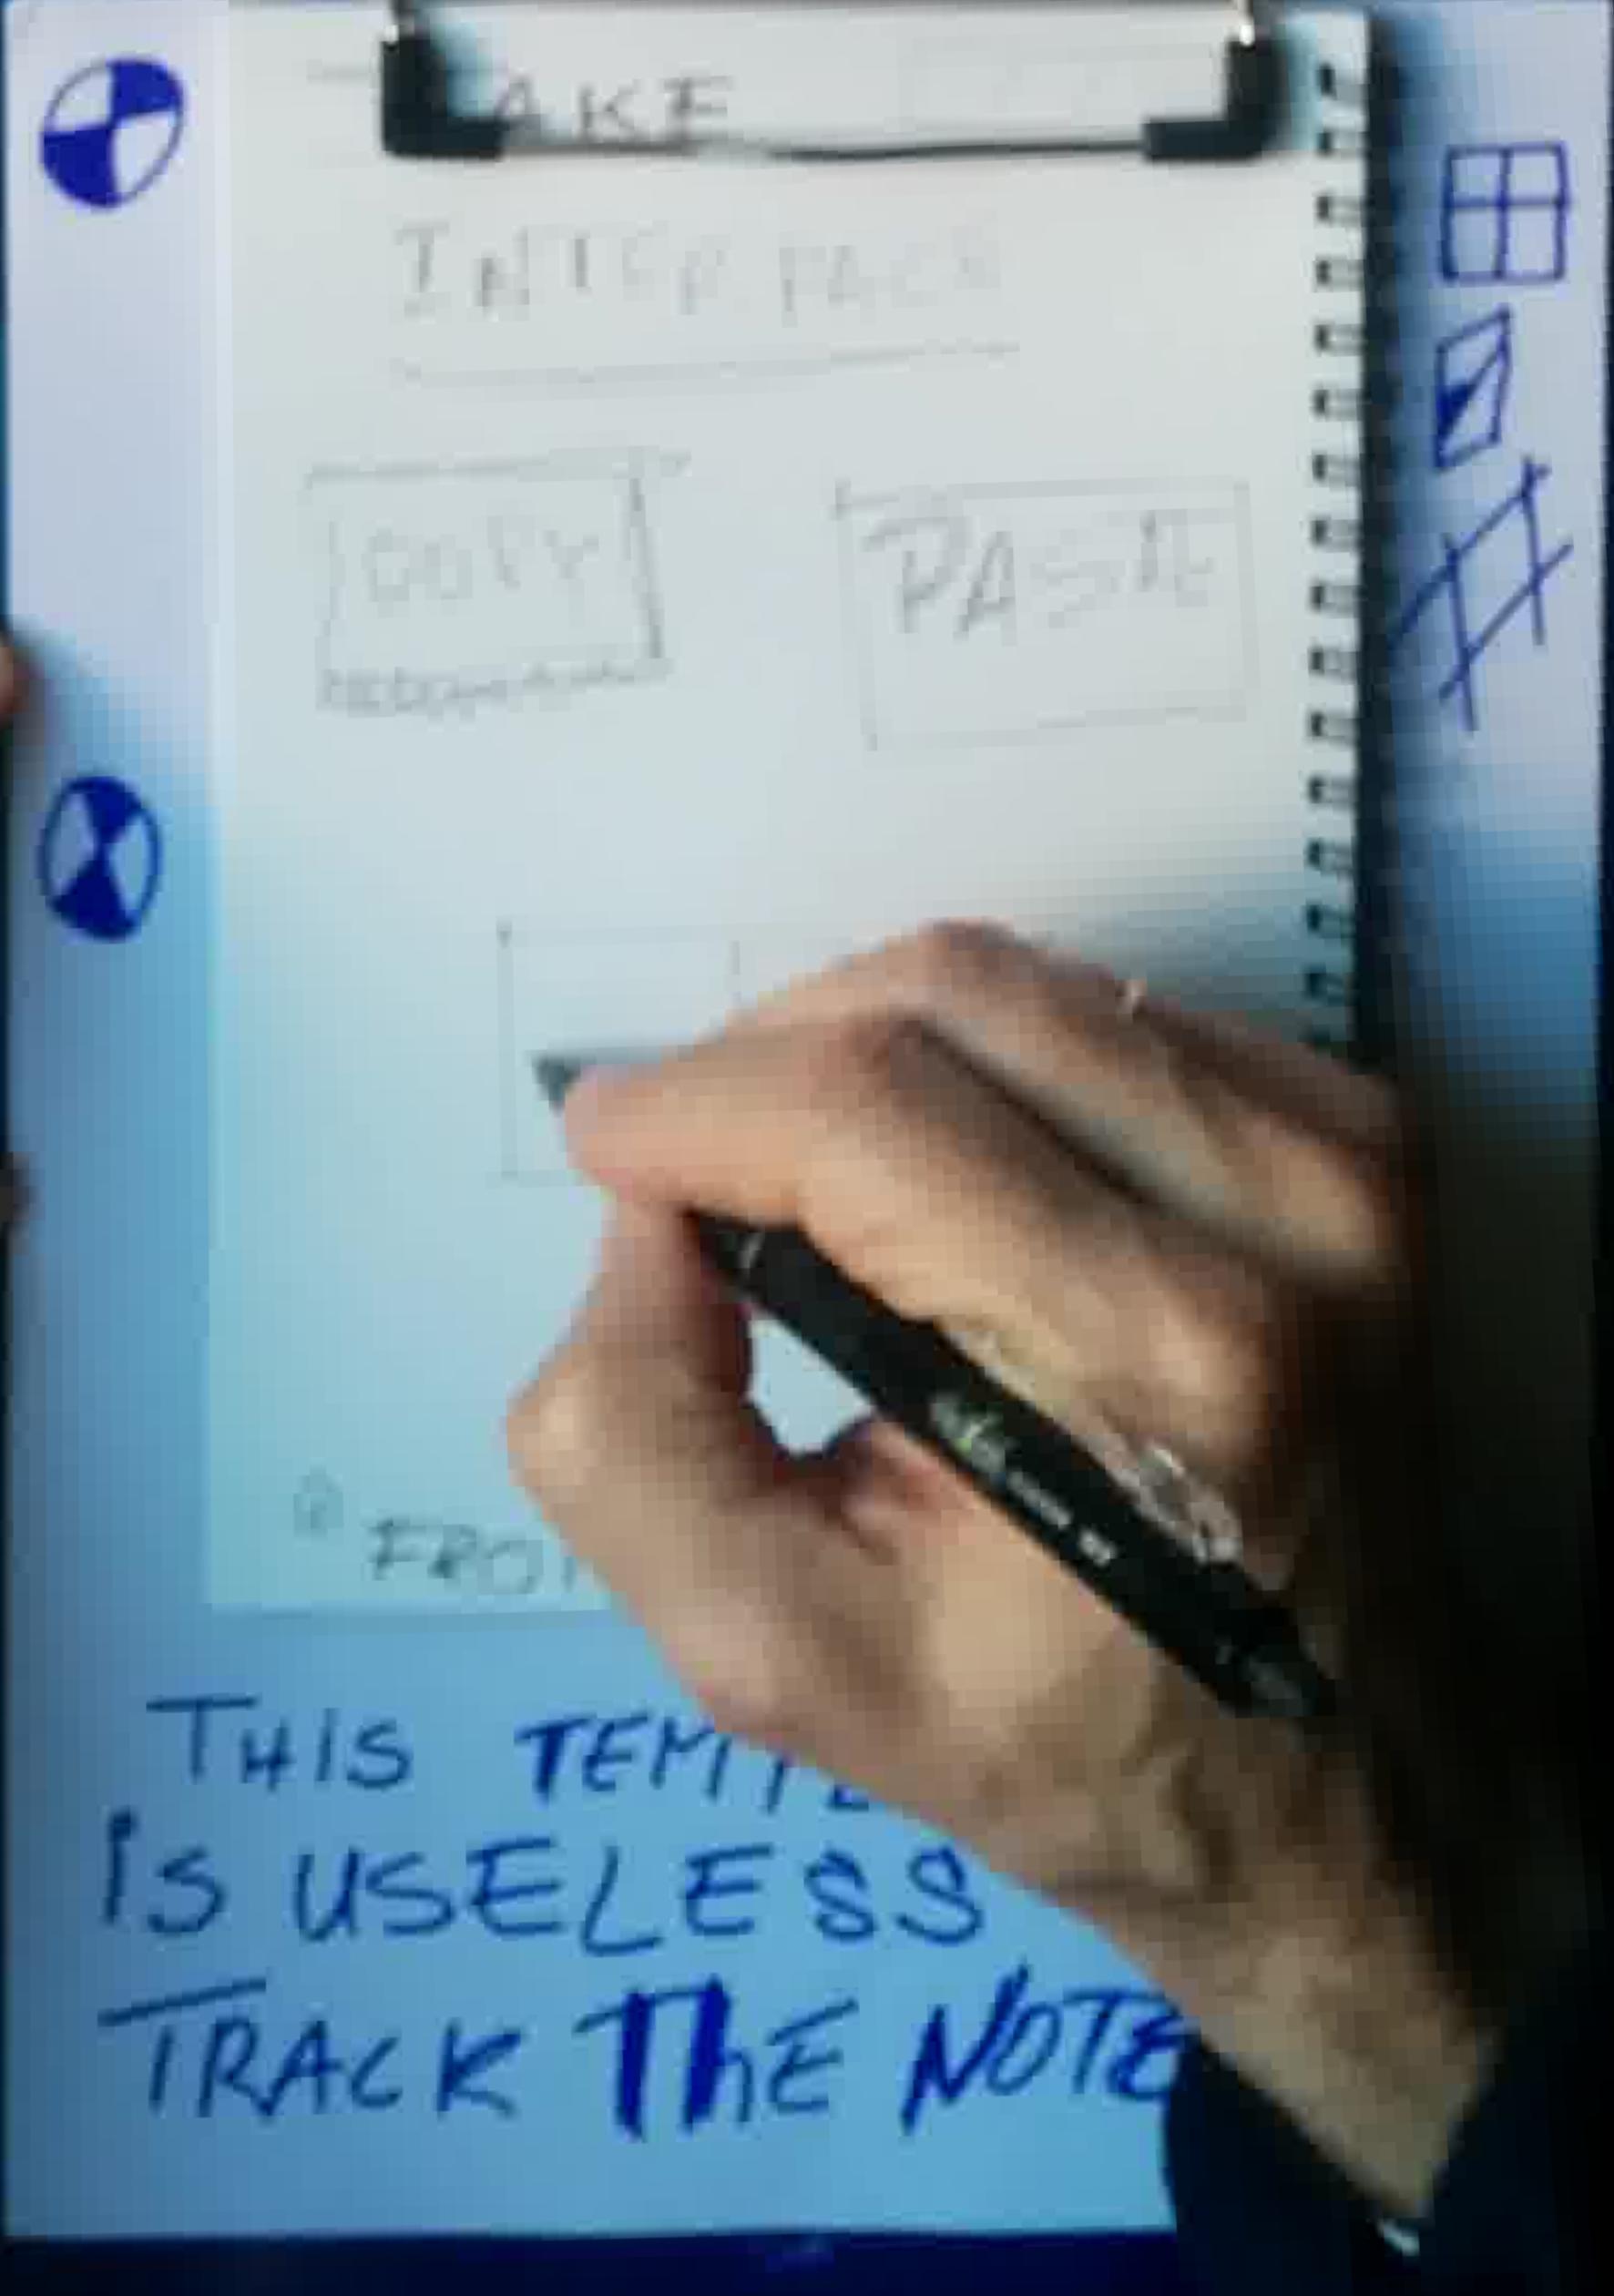 AKE
INTERFACE
COPY
PASTE
THIS TEMPL
IS USELESS
TRACK THE NOTE